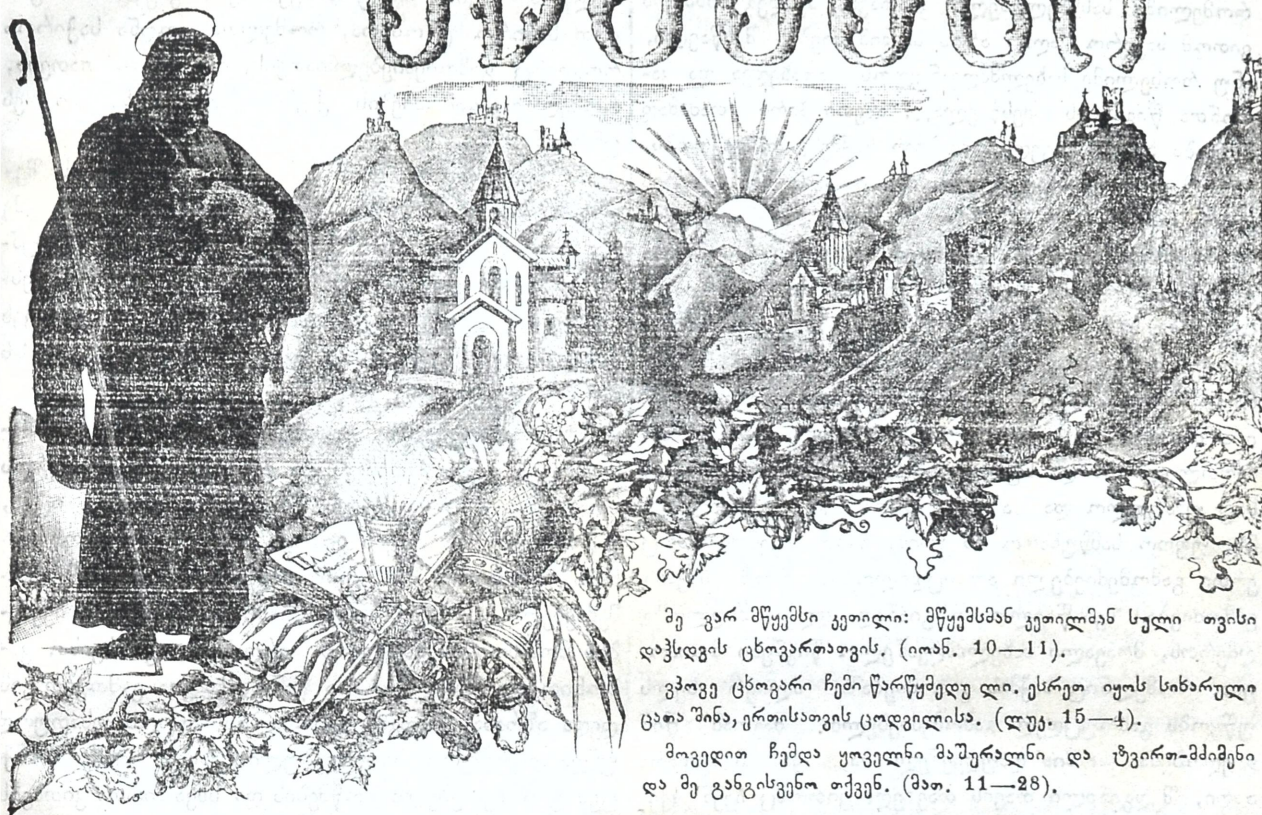 მე ვარ მწყემსი კეთილი: მწყემსმან კეთილმან სული თვისი
დაჰსდვის ცხოვართათვის, (იოან. 10—11).
ვპოვე ცხოვარი ჩემი წარწყმედუ ლი. ესრეთ იყოს სიხარული
ცათა შინა, ერთისათვის ცოდვილისა. (ლუკ. 15—4).
მოვედით ჩემდა ყოველნი მაშურალნი და ტვირთ-მძიმენი
და მე განგისვენო თქვენ. (მათ. 11—28).